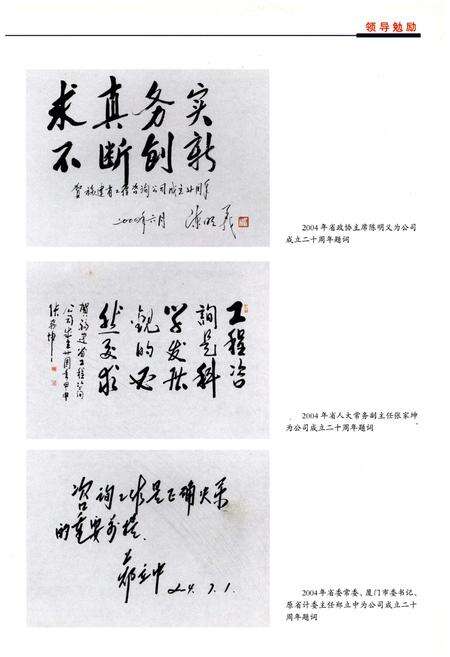 领导勉励
求真务实
不断创新
贺福建省工程咨询公司成立廿周年
二〇〇四年六月 陈明义
2004年省政协主席陈明义为公司
成立二十周年题词
工程咨
询是科
学发展
观的必
然要求
贺福建省工程咨询
公司成立廿周年甲申
张家坤
2004年省人大常务副主任张家坤
为公司成立二十周年题词
咨询工作是正确决策
的重要前提
郑立中
2004年省委常委、厦门市委书记、
原省计委主任郑立中为公司成立二十
周年题词